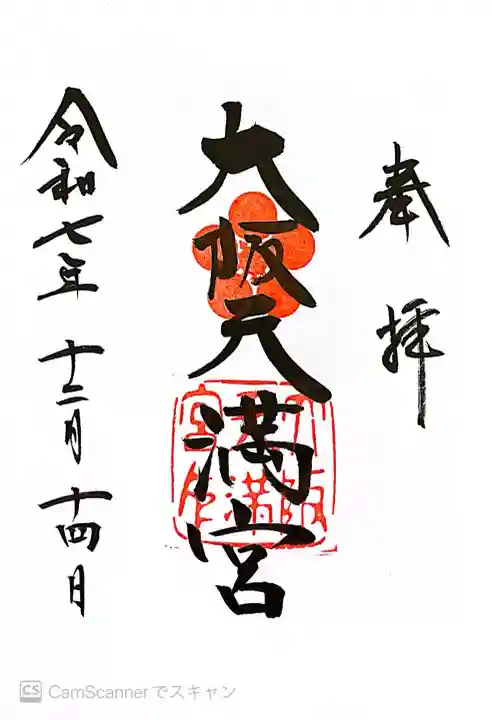 奉拝
大阪天満宮
令和七年 十二月 十四日
CS CamScannerでスキャン